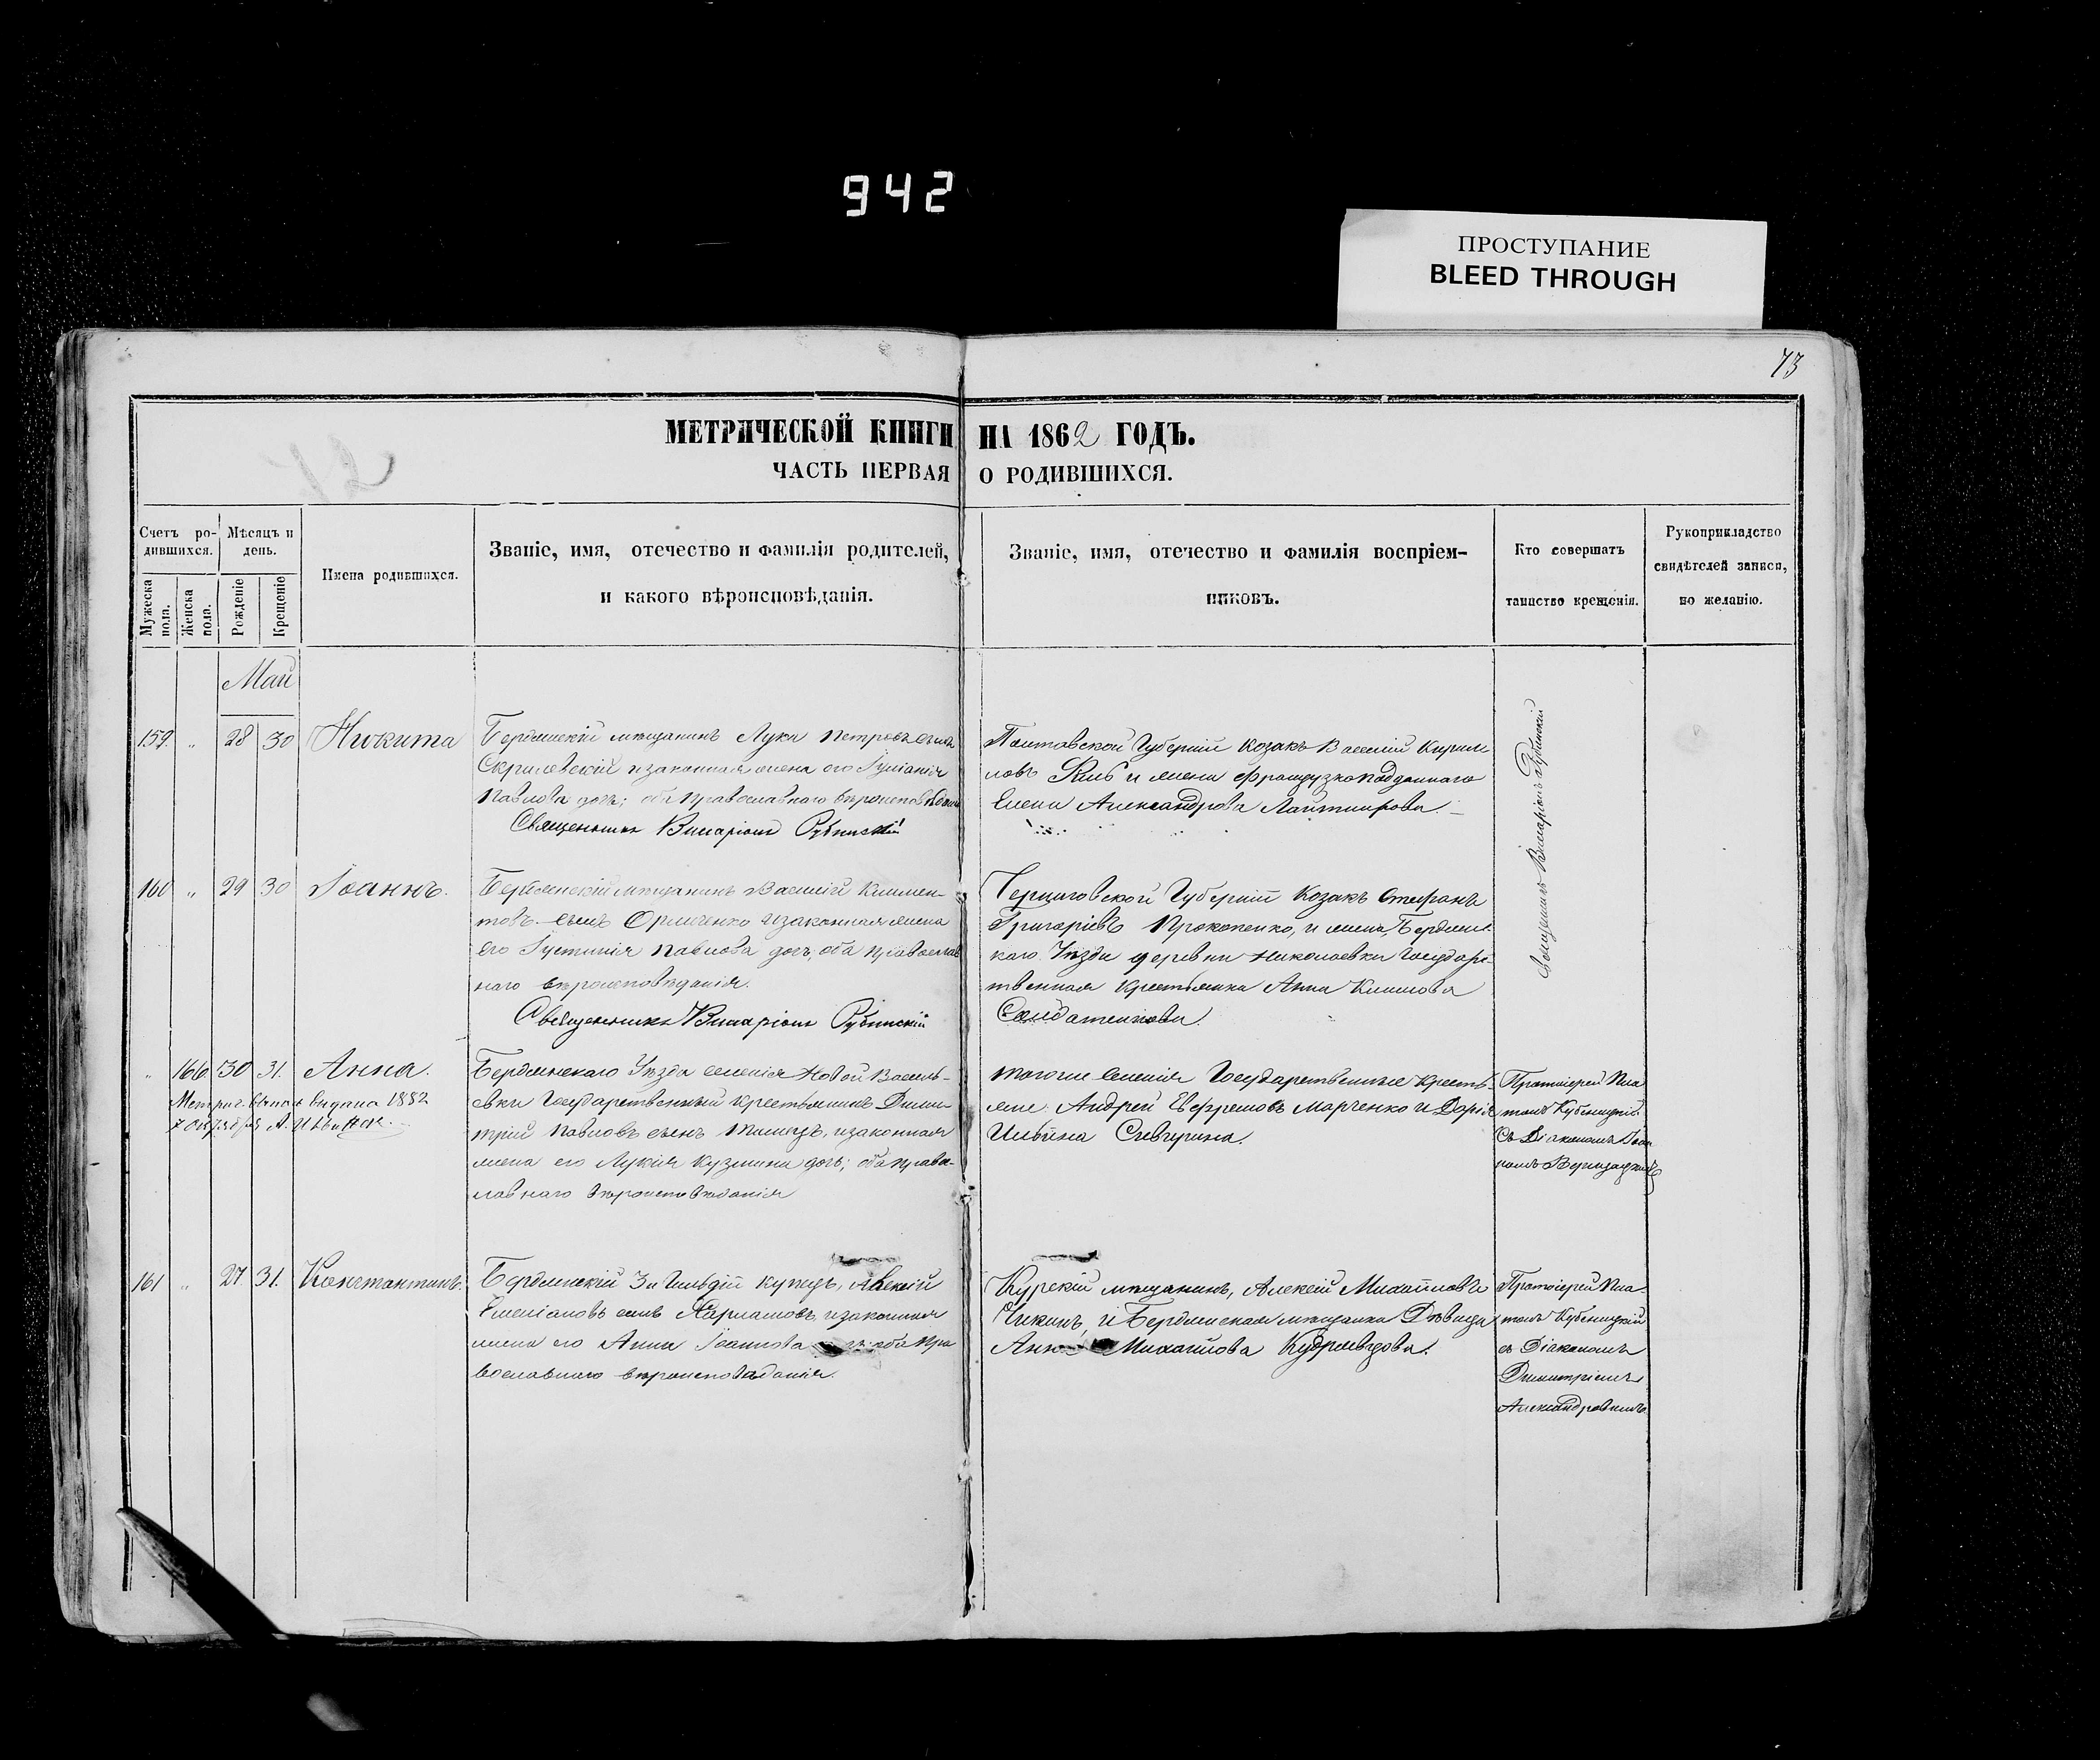 942
ПРОСТУПАНИЕ
BLEED THROUGH
73
МЕТРИЧЕСКОЙ КНИГИ НА 1862 ГОДЪ.
ЧАСТЬ ПЕРВАЯ О РОДИВШИХСЯ.
Счетъ ро-
дившихся.
Мужеска пола.
Женска пола.
Мѣсяцъ и
день.
Рожденіе
Крещеніе
Имена родившихся.
Званіе, имя, отечество и фамилія родителей,
и какого вѣроисповѣданія.
Званіе, имя, отечество и фамилія воспріем-
никовъ.
Кто совершатъ
таинство крещенія.
Рукоприкладство
свидѣтелей записи,
по желанію.
Май
159. " 28 30 Никита
Бердянскій мѣщанинъ Лука Петровъ сынъ
Скрилевскій и законная жена его Іуліанія
Павлова дочь; оба православнаго вѣроисповѣданія
Священникъ Иларіонъ Рубинскій
Полтавской Губерніи козакъ Василій Кирил
ловъ и жена французкоподданнаго
Елена Александрова
Священникъ Иларіонъ Рубинскій
160 " 29 30 Іоаннъ.
Бердянскій мѣщанинъ Василій Климен-
товъ сынъ Орличенко и законная жена
его Іустинія Павлова дочь, оба православ
наго вѣроисповѣданія.
Священникъ Иларіонъ Рубинскій
Черниговской Губерніи козакъ Стефанъ
Григоріевъ Прокопенко, и жена, Бердянс
каго Уѣзда деревни Николаевки Государ-
ственная крестьянка Анна Климова
Солдатенкова.
" 166 30 31. Анна.
Метрич. выдана 1882
Бердянскаго Уѣзда селенія Новой Василь-
евки Государственный крестьянинъ Дими-
трій Павловъ сынъ и законная
жена его Лукія Кузмина дочь; оба право-
славнаго вѣроисповѣданія
тогоже селенія Государственные кресть-
яне: Андрей Евфремовъ Марченко и Дарія
Ильина Сиверина.
Протоіерей Пла
тонъ Кубеницкій
Съ Діакономъ Іоан
номъ
161 " 27 31. Константинъ.
Бердянскій 3й Гильдіи купецъ, Алексій
сынъ и законная
жена его Анна Іоаннова оба пра
вославнаго вѣроисповѣданія.
Курскій мѣщанинъ, Алексій Михайловъ
Чикинъ, и Бердянская мѣщанка Дѣвица
Анна Михайлова Кудрявцова.
Протоіерей Пла
тонъ Кубеницкій
съ Діакономъ
Димитріемъ
Александровымъ